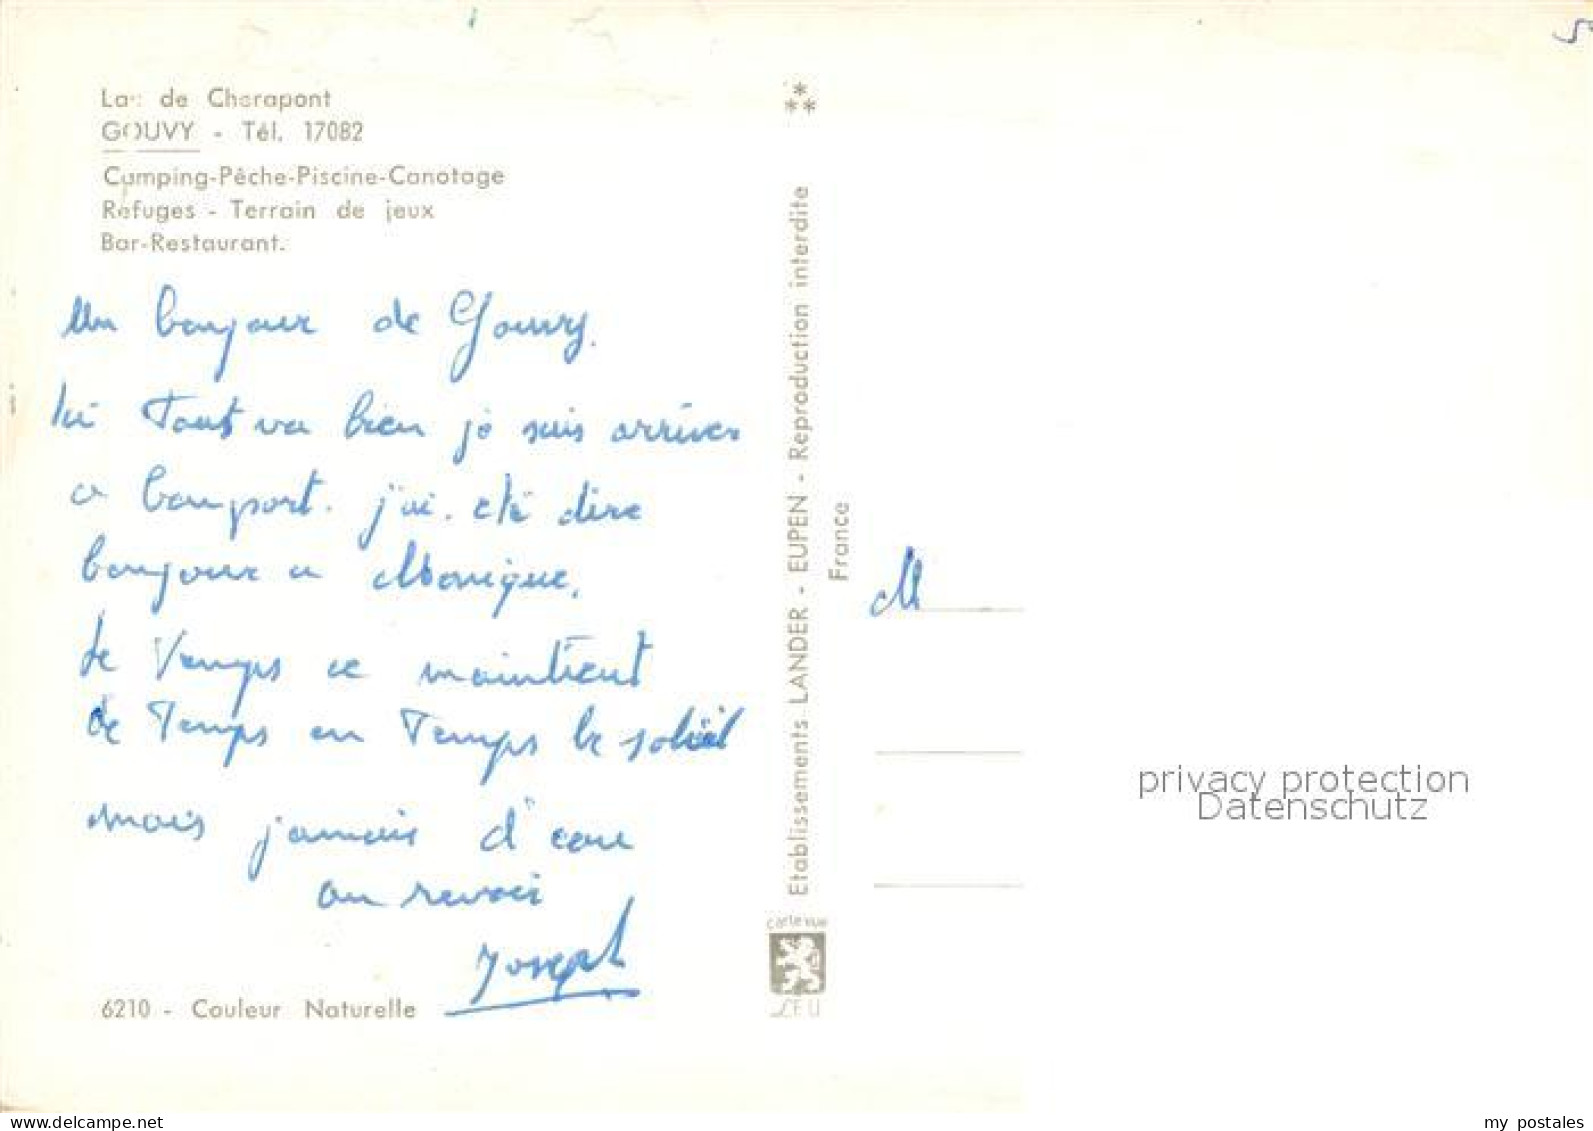 Lac de Cherapont
GOUVY - Tél. 17082
Camping-Pêche-Piscine-Canotage
Refuges - Terrain de jeux
Bar-Restaurant.
Un bonjour de Gouvy.
Ici Tout va bien je suis arriver
a bon port. j'ai. été dire
bonjour a Monique.
Le Temps ce maintient
de Temps en Temps le soleil
mais jamais d'eau
au revoir
Joseph
6210 - Couleur Naturelle
Etablissements LANDER - EUPEN - Reproduction interdite
France
carte vue
LEU
M
privacy protection
Datenschutz
www.delcampe.net
my_postales